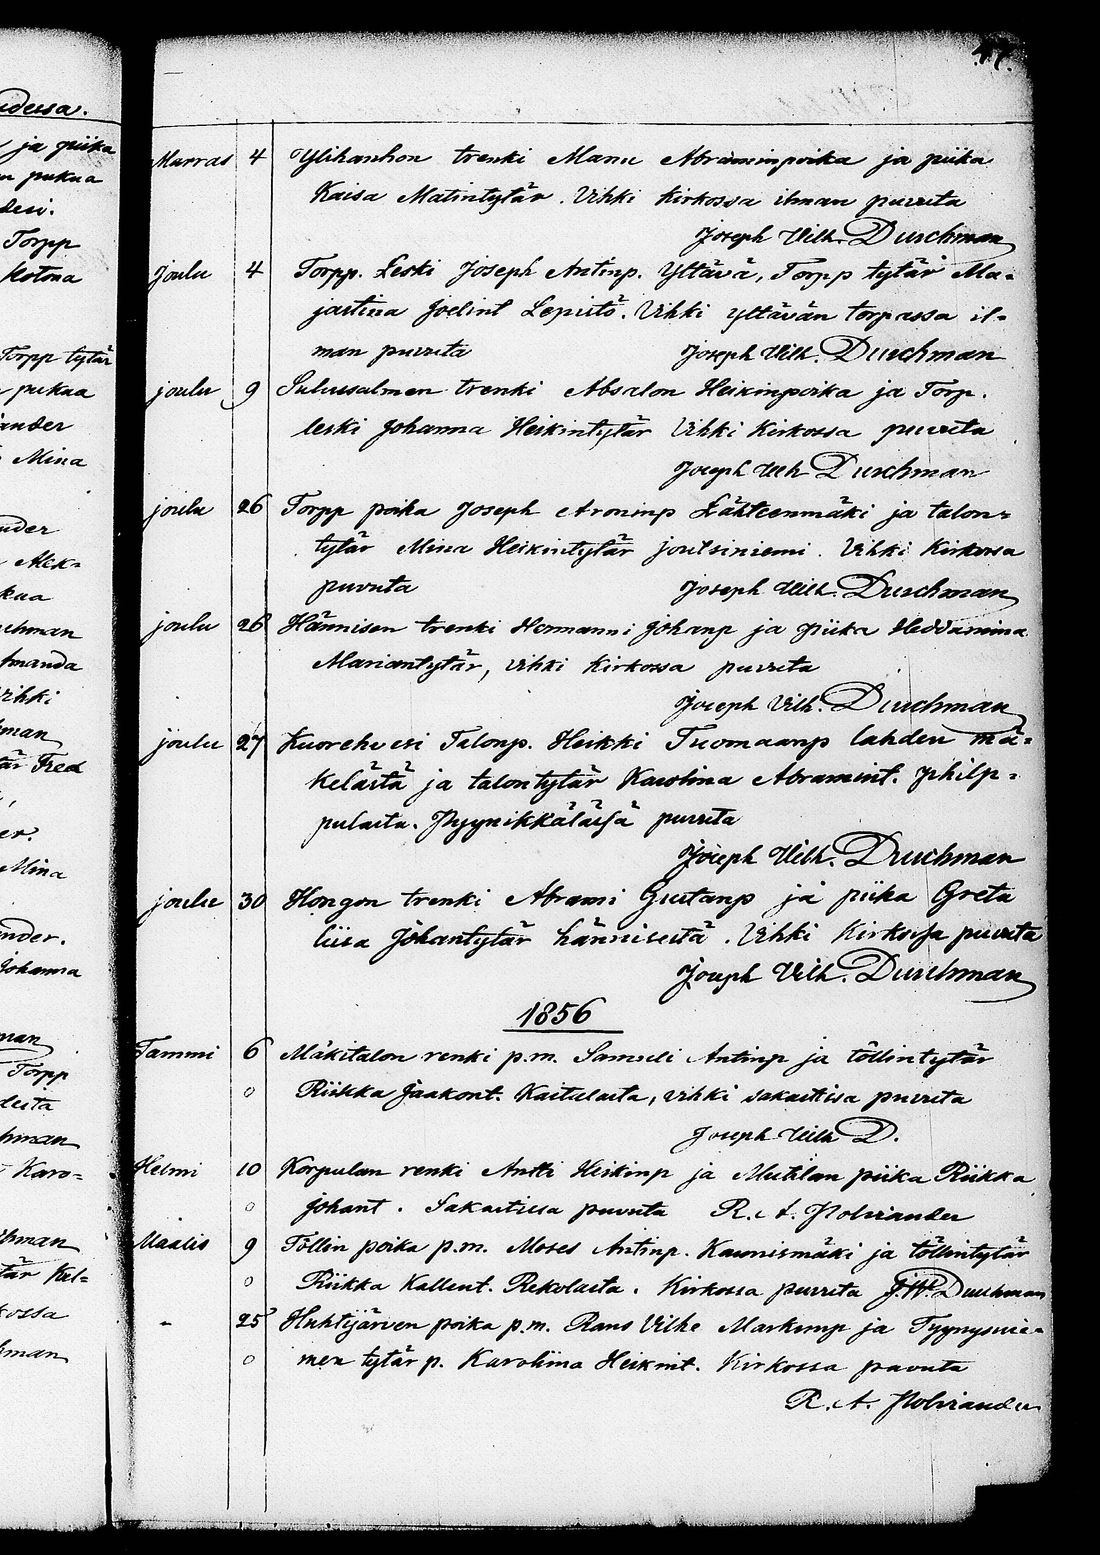 udessa.
ja piika
pukua
desi.
Torpp
kotona
Torpp tytär
pukua
ander
Mina
nder
Alek-
kua
chman
Amanda
vihki
man
tär Fred
er.
Mina
nder.
Johanna
man
Torpp
lesta
hman
Karo-
hman
tär Kal-
kossa
hman
47.
Marras 4 Ylihanhon trenki Manu Abraminpoika ja piika
Kaisa Matintytär. Vihki Kirkossa ilman puvuta
Joseph Vilh. Durchman
Joulu 4 Torpp. Leski Joseph Antinp. Yltävä, Torpp tytär Ma-
jastina Joelint Lepistö. Vihki Yltävän torpassa il-
man puvuta Joseph Vilh. Durchman
joulu 9 Sulussalmen trenki Absalon Heikinpoika ja Torp.
leski Johanna Heikintytär Vihki Kirkossa puvuta
Joseph Vilh Durchman
joulu 26 Torpp poika Joseph Aroninp Lähteenmäki ja talon-
tytär Mina Heikintytär joutsiniemi. Vihki Kirkossa
puvuta Joseph Vilh. Durchman
joulu 26 Hännisen trenki Hermanni Johanp ja piika Heddamina
Mariantytär, vihki Kirkossa puvuta
Joseph Vilh. Durchman
joulu 27 Kuorehvesi Talonp. Heikki Tuomaanp lahden mä-
kelästä ja talontytär Karolina Abramint. philp-
pulasta. Pyynikkäläsä puvuta
Joseph Vilh. Durchman
joulu 30 Hongon trenki Abrami Gustanp ja piika Greta
liisa Johantytär hännisestä. Vihki Kirkossa puvuta
Joseph Vilh. Durchman
1856
Tammi 6 Mäkitalon renki p.m. Samuli Antinp ja töllintytär
o Riikka Jaakont. Kaitalasta, vihki sakastissa puvuta
Joseph Vilh D.
Helmi 10 Korpulan renki Antti Heikinp ja Mutilan piika Riikka
o Johant. Sakastissa puvuta R. A. Holviander
Maalis 9 Töllin poika p.m. Moses Antinp. Kaunismäki ja töllintytär
o Riikka Kallent. Rekolasta. Kirkossa puvuta J. W. Durchman
- 25 Huhtijärven poika p.m. Rans Vilhe Markunp ja Tyynysnie-
o men tytär p. Karoliina Heikint. Kirkossa puvuta
R. A. Holviander